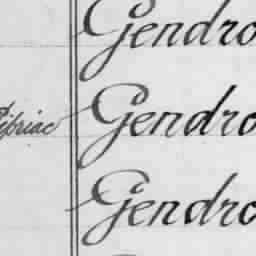 Gendro
Pibriac Gendro
Gendro